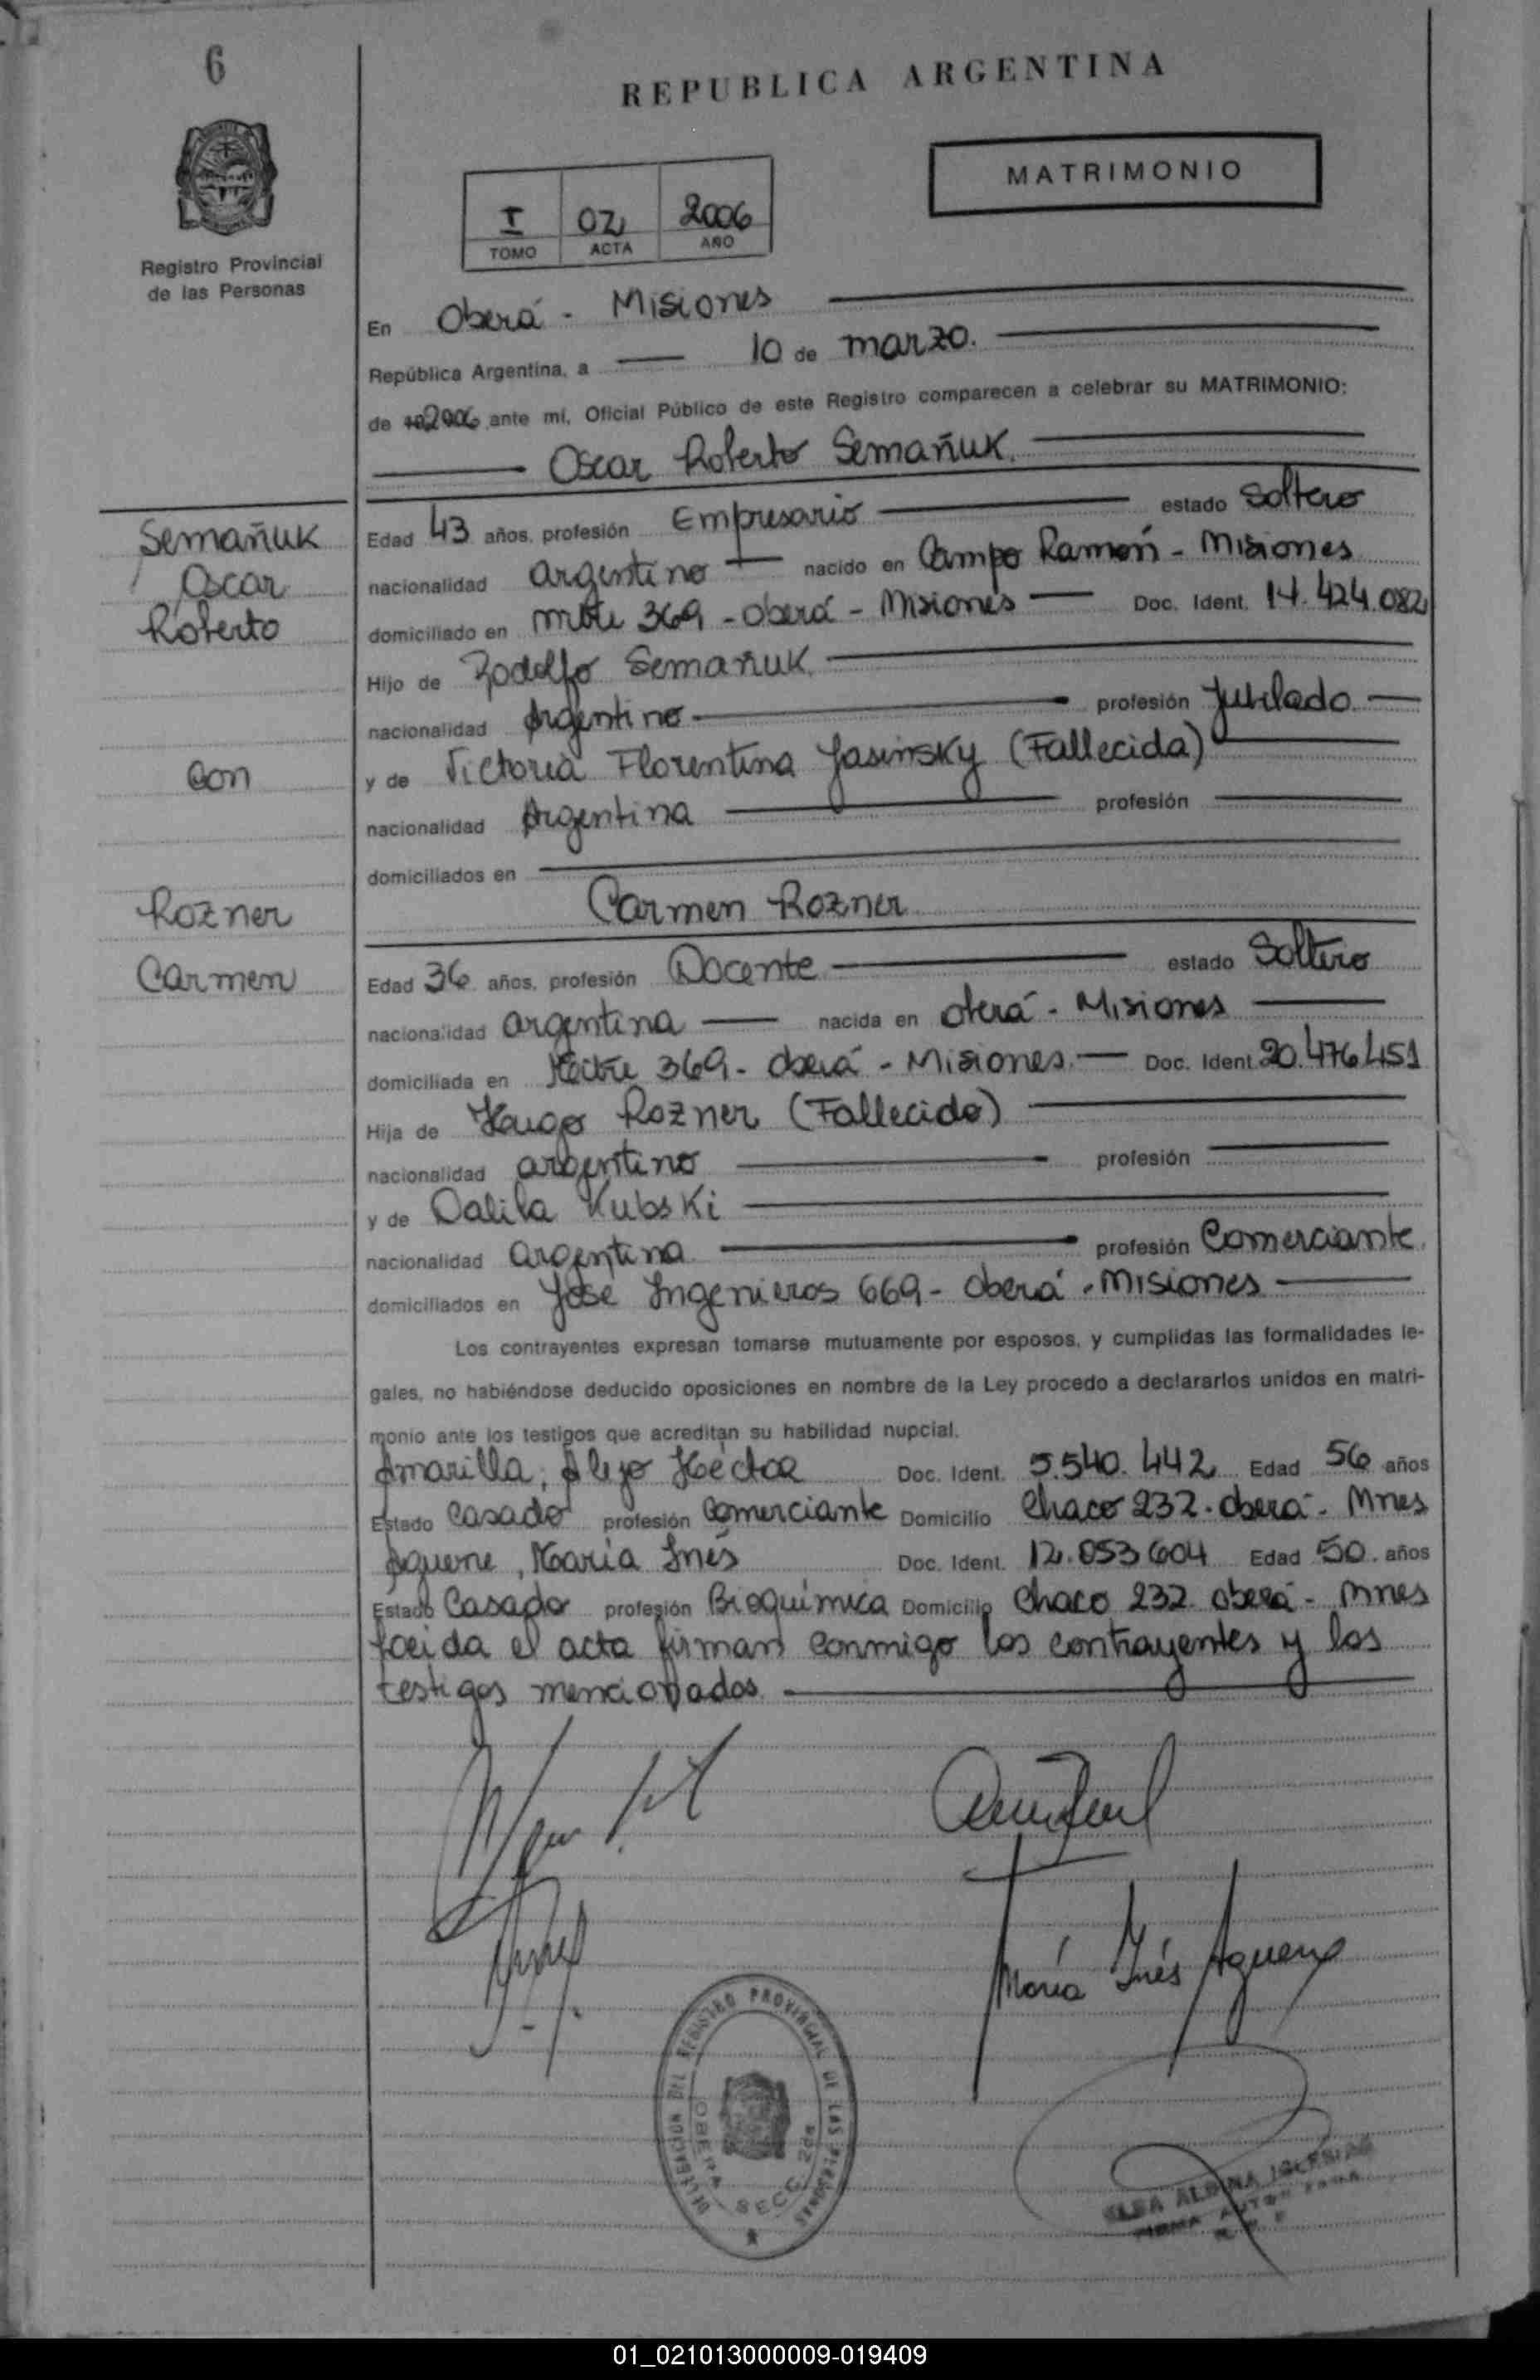 6
REPUBLICA ARGENTINA
MATRIMONIO
I 02 2006
TOMO ACTA AÑO
Registro Provincial
de las Personas
En Oberá - Misiones
República Argentina, a 10 de marzo.
de 192006 ante mí, Oficial Público de este Registro comparecen a celebrar su MATRIMONIO:
Oscar Roberto Semañuk.
Semañuk
Oscar
Roberto
con
Rozner
Carmen
Edad 43 años, profesión Empresario estado Soltero
nacionalidad argentino nacido en Campo Ramón - Misiones
domiciliado en Mitre 369 - Oberá - Misiones Doc. Ident. 14.424.082
Hijo de Rodolfo Semañuk.
nacionalidad Argentino profesión Jubilado
y de Victoria Florentina Jasinsky (Fallecida)
nacionalidad Argentina profesión
domiciliados en
Carmen Rozner
Edad 36 años, profesión Docente estado Soltero
nacionalidad argentina nacida en Oberá - Misiones
domiciliada en Mitre 369 - Oberá - Misiones. Doc. Ident. 20.476.451
Hija de Hugo Rozner (Fallecido)
nacionalidad argentino profesión
y de Dalila Kubski
nacionalidad argentina profesión Comerciante.
domiciliados en José Ingenieros 669 - Oberá - Misiones
Los contrayentes expresan tomarse mutuamente por esposos, y cumplidas las formalidades le-
gales, no habiéndose deducido oposiciones en nombre de la Ley procedo a declararlos unidos en matri-
monio ante los testigos que acreditan su habilidad nupcial.
Amarilla, Alejo Héctor Doc. Ident. 5.540.442 Edad 56 años
Estado Casado profesión Comerciante Domicilio Chaco 232 - Oberá - Mnes
Aguene, María Inés Doc. Ident. 12.053604 Edad 50. años
Estado Casado profesión Bioquímica Domicilio Chaco 232 Oberá - Mnes
Leida el acta firman conmigo los contrayentes y los
testigos mencionados.
María Inés Aguene
DELEGACION DEL REGISTRO PROVINCIAL DE LAS PERSONAS
OBERA SECC. 2da
ELBA ALBINA IGLESIAS
01_021013000009-019409